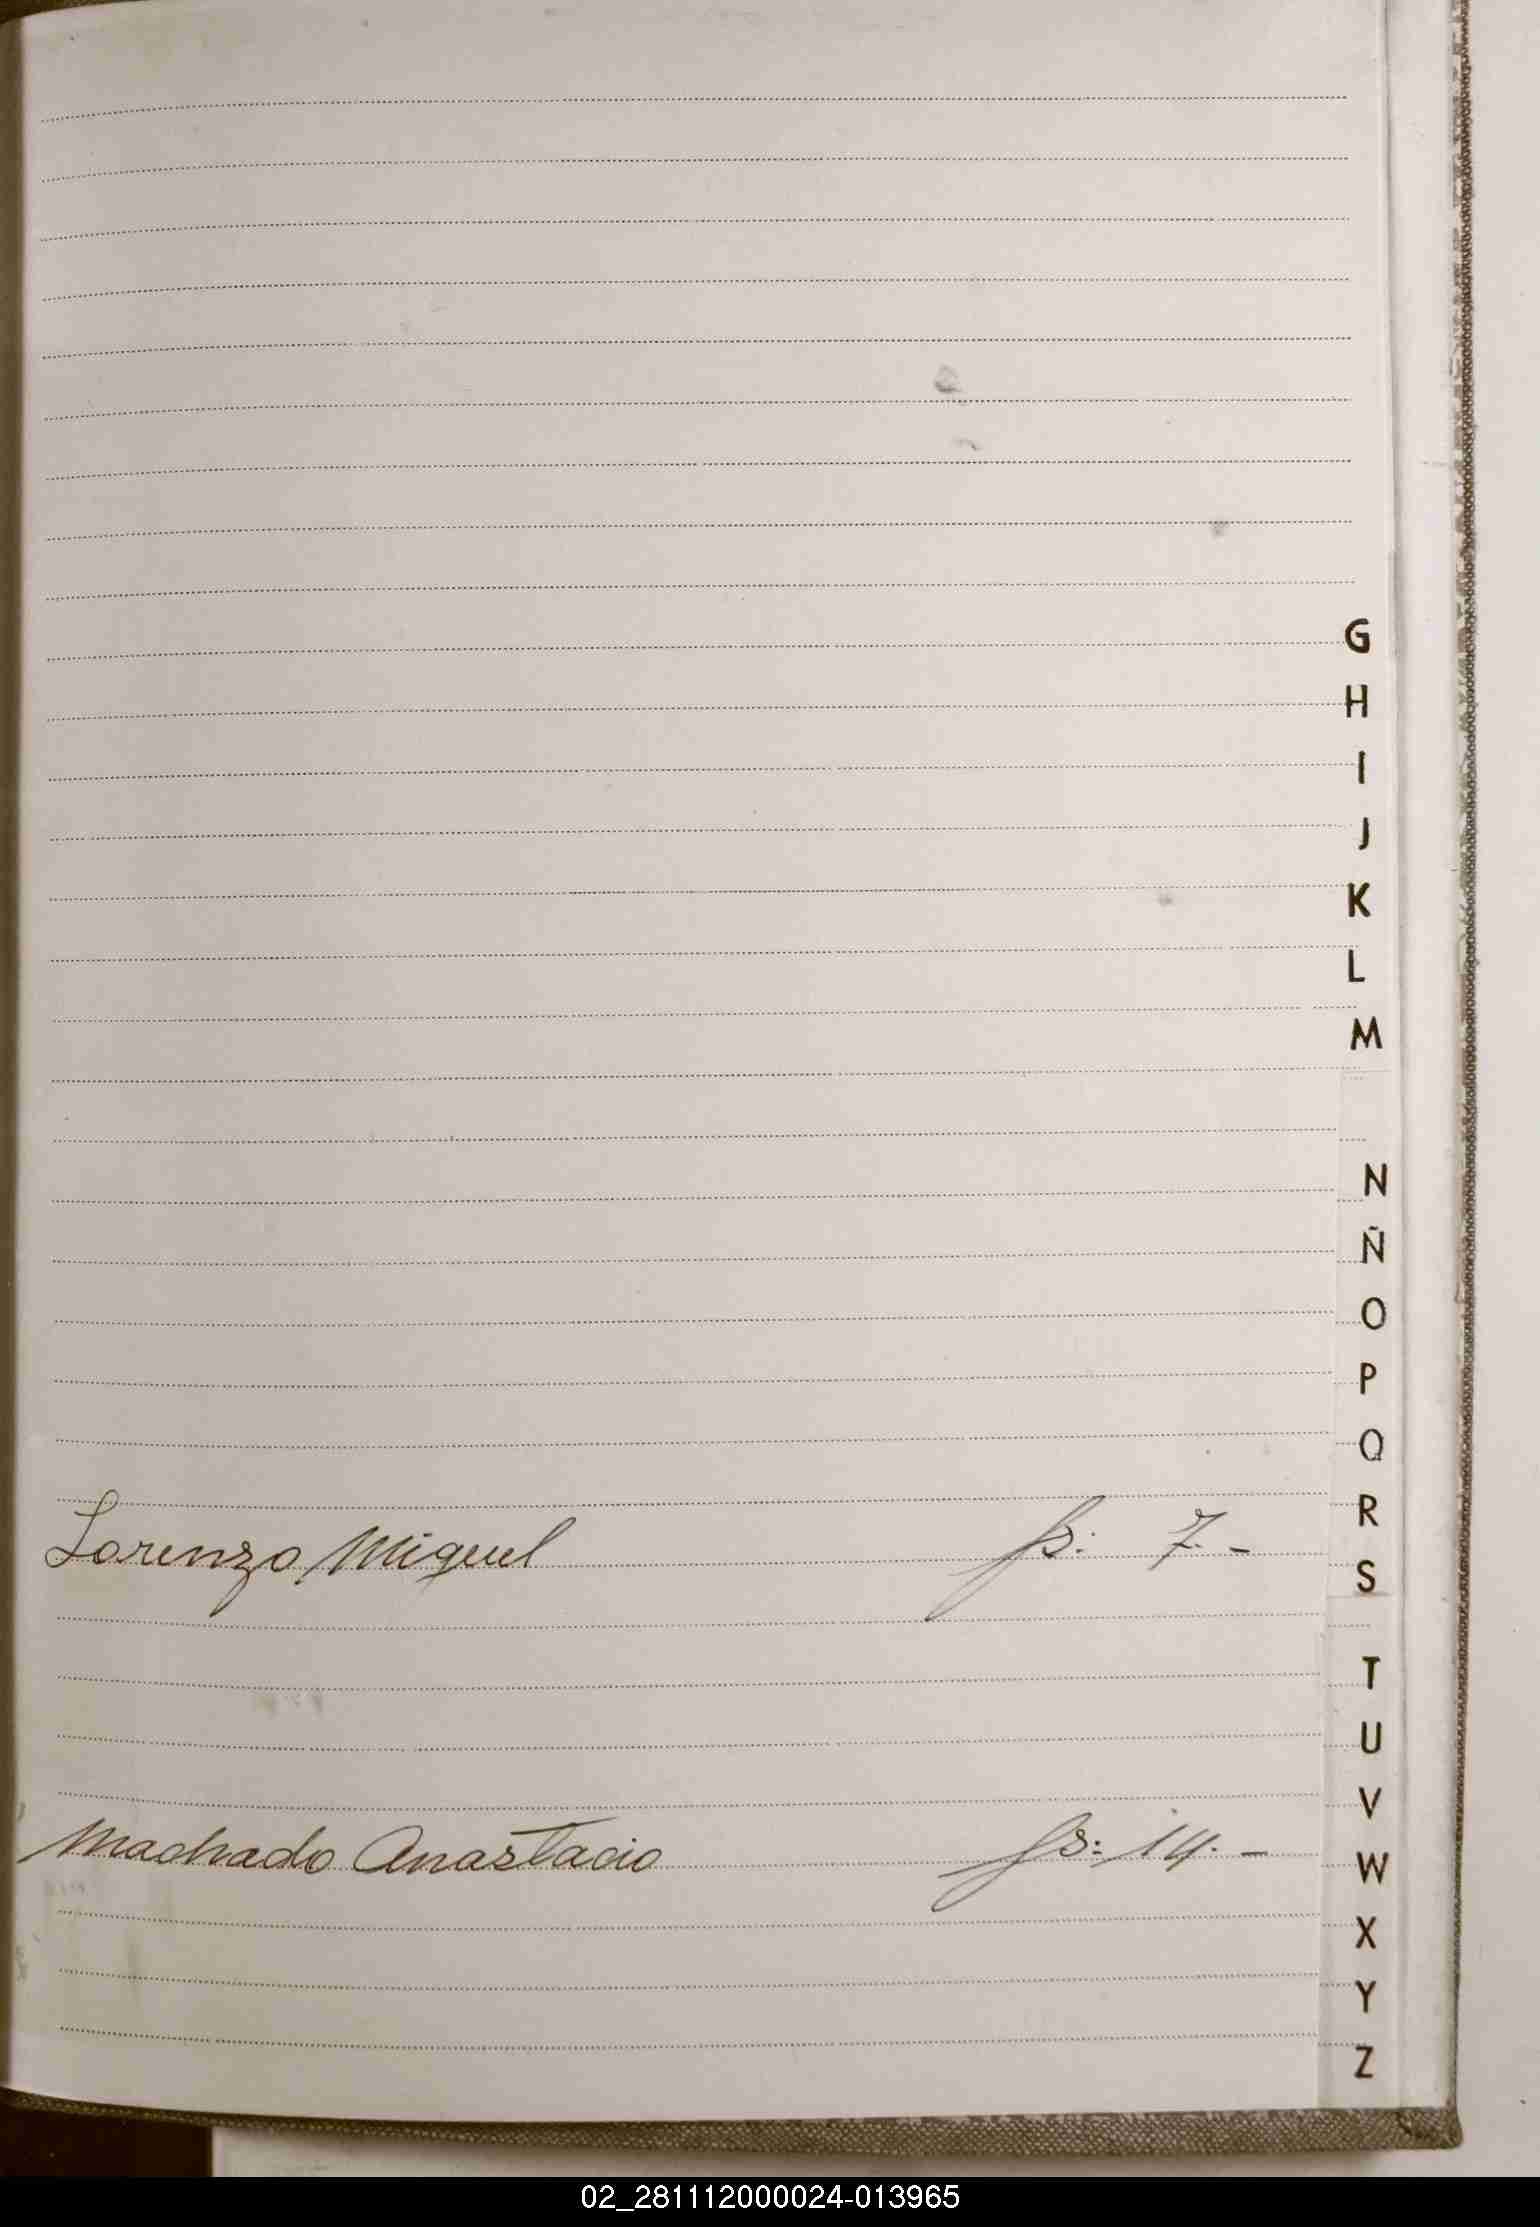 G
H
I
J
K
L
M
N
Ñ
O
P
Q
R
Lorenzo, Miguel fs: 7.-
S
T
U
V
Machado Anastacio fs: 14.-
W
X
Y
Z
02_281112000024-013965